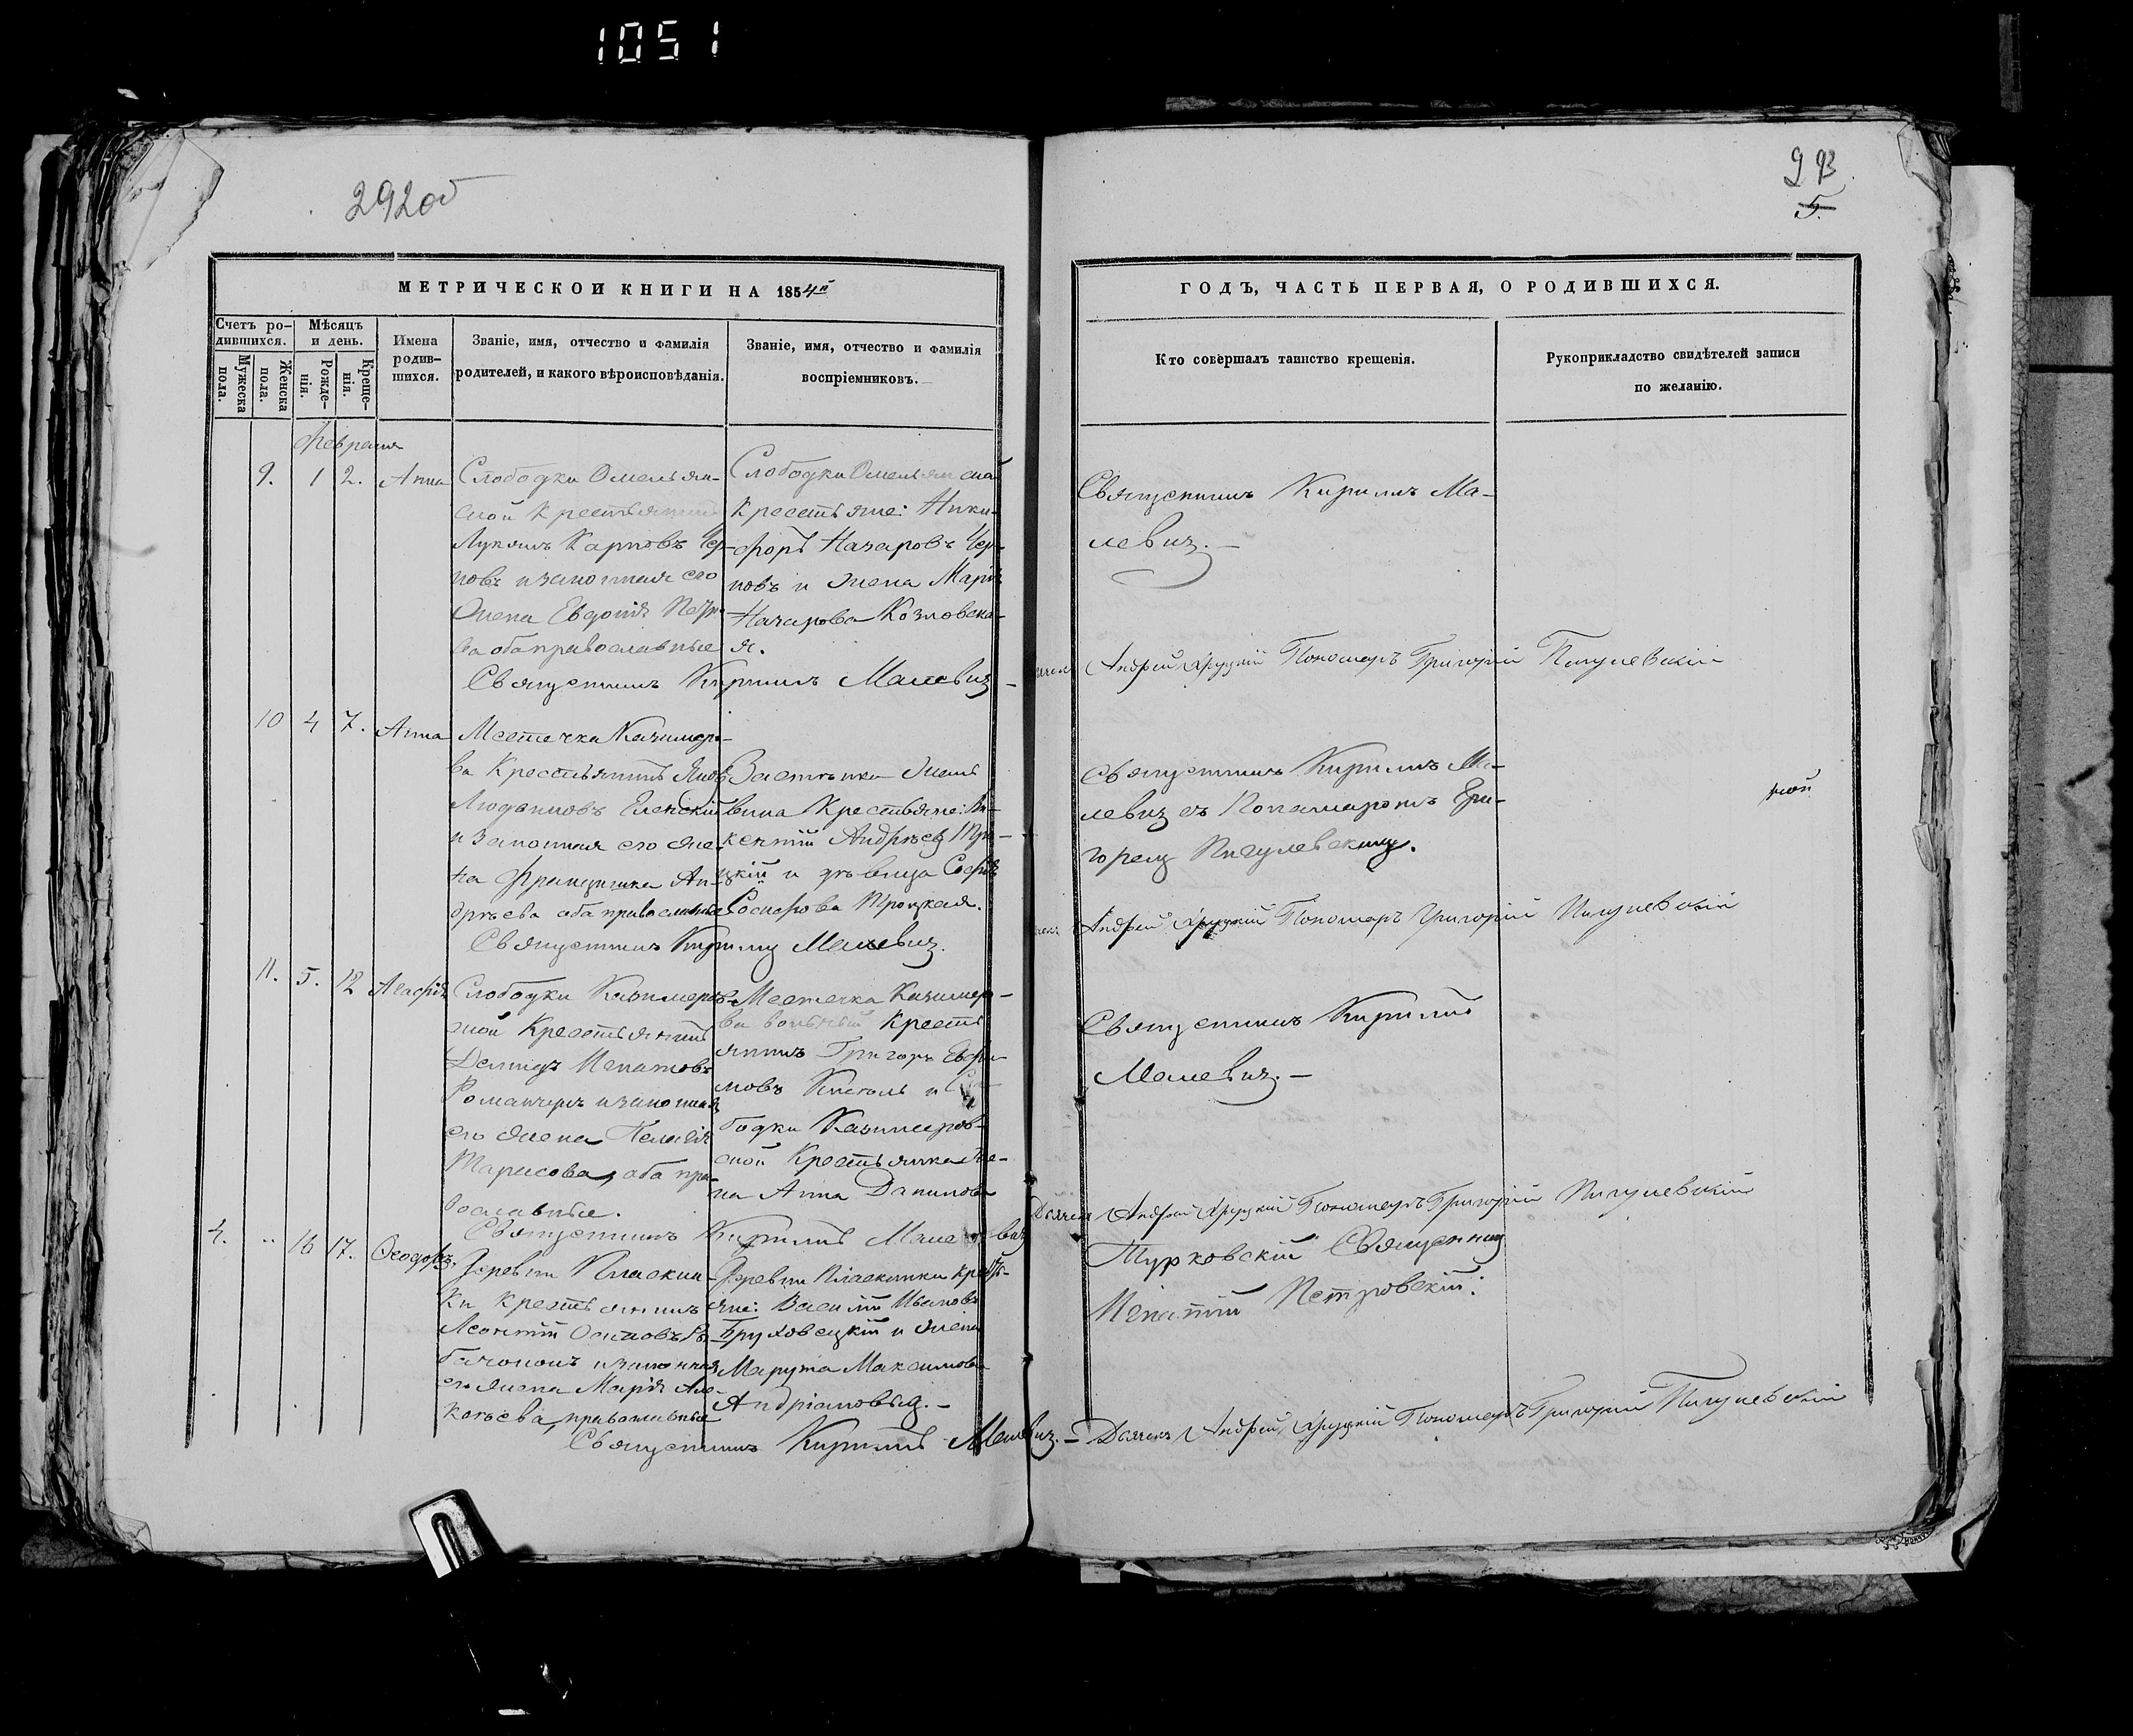 1051
292об
293
5.
МЕТРИЧЕСКОЙ КНИГИ НА 1854й
ГОДЪ, ЧАСТЬ ПЕРВАЯ, О РОДИВШИХСЯ.
Счетъ ро-
дившихся.
Мѣсяцъ
и день.
Мужеска
пола.
Женска
пола.
Рожде-
нія.
Креще-
нія.
Имена
родив-
шихся.
Званіе, имя, отчество и фамилія
родителей, и какого вѣроисповѣданія.
Званіе, имя, отчество и фамилія
воспріемниковъ.
Кто совершалъ таинство крещенія.
Рукоприкладство свидѣтелей записи
по желанію.
Февраля
9. 1 2. Анна
Слободки Омельян-
ской Крестьянинъ
Лукянъ Карповъ Чер-
новъ и законная его
жена Евдокія Петро-
ва оба православные
Слободки Омельянской
Крестьяне: Ники-
форъ Назаровъ Чер-
новъ и жена Марія
Назарова Козловска-
я.
Священникъ Кириллъ Ма-
левич.
Священникъ Кириллъ Малевич
Андрей Хруцкій Пономарь Григорій Пигулевскій
10 4 7. Анна
Местечка Казимиро-
ва Крестьянинъ Яковъ
Людвиковъ Еленскій
и законная его же-
на Францишка Ан-
дреева оба православные
Застѣнка
Крестьяне: Ви-
кентій Андреев Тро-
цкій и дѣвица Софія
Іосифова Троцкая.
Священникъ Кириллъ Ма-
левич съ Понамаромъ Гри-
горем Пигулевскимъ.
ной
Священникъ Кирилл Малевич.
Андрей Хруцкій Пономарь Григорій Пигулевскій
11. 5. 12 Агафія
Слободки Казимиров-
ской Крестьянинъ
Демидъ Игнатовъ
Романчукъ и законная
его жена Пелагія
Тарасова, оба пра-
вославные.
Местечка Казимиро-
ва вольный Кресть
янинъ Григоръ Ефи-
мовъ Кисель и Сло-
бодки Казимиров-
ской Крестьянка же-
на Анна Данилова
Священникъ Кириллъ
Малевич.
Священникъ Кириллъ Малевич
Дьячекъ Андрей Хруцкій Пономарь Григорій Пигулевскій
4. " 16 17. Феодоръ.
Деревни Пласкин-
ки крестьянинъ
Леонтій Осиповъ
и законная
его жена Марія Але-
ксѣева, православные
Деревни Пласкинки крестья-
яне: Василій Ивановъ
Бруховецкій и жена
Марута Максимова
Андріановыд.
Турковскій Священникъ
Игнатій Петровскій.
Священникъ Кириллъ Малевич.
Дьячекъ Андрей Хруцкій Пономарь Григорій Пигулевскій